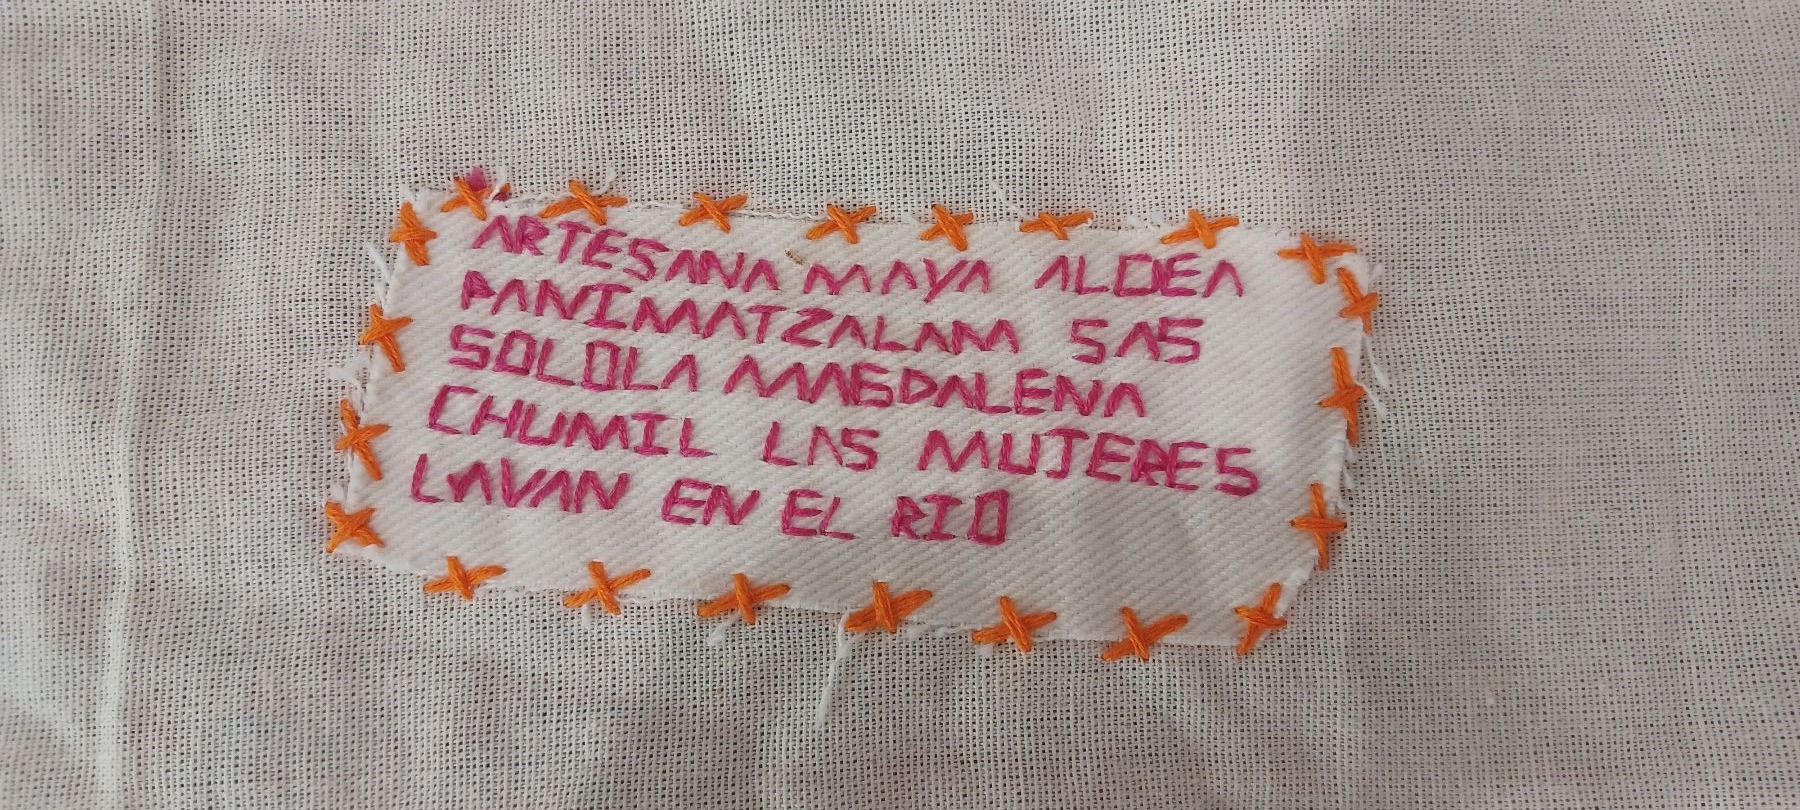 ARTESANA MAYA ALDEA
PANIMATZALAM SAS
SOLOLA MAGDALENA
CHUMIL LAS MUJERES
LAVAN EN EL RIO